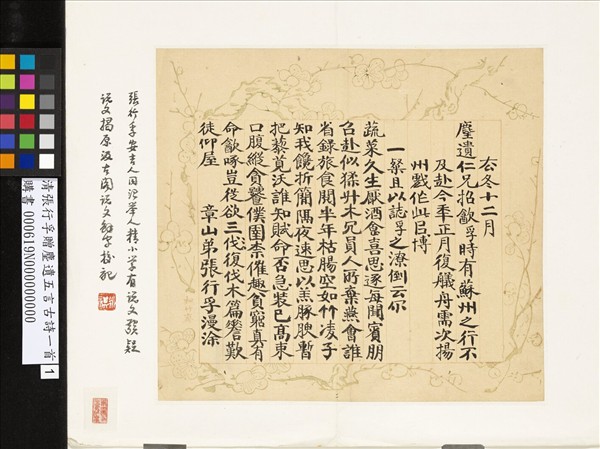 去冬十二月
塵遺仁兄招飲孚時有蘇州之行不
及赴今年正月復艤舟需次揚
州戲作此呈博
一粲且以誌孚之潦倒云尒
蔬菜久生厭酒食喜思逐每聞賓朋
召赴似猱升木冗員人所棄燕會誰
省錄旅食閱半年枯腸空如竹凌子
知我饞折簡隔夜速思以羔豚腴暫
把藜莧沃誰知賦命否急裝已高束
口腹縱貪饕僕圉柰催趣貧窮真有
命飲啄豈從欲三代復伐木篇嘗歎
徒仰屋 章山弟張行孚漫涂
張行孚安吉人同治舉人精小學有說文發疑
說文揭原汲古閣說文解字校記
清張行孚贈塵遺五言古詩一首
購書 000619N000000000
1